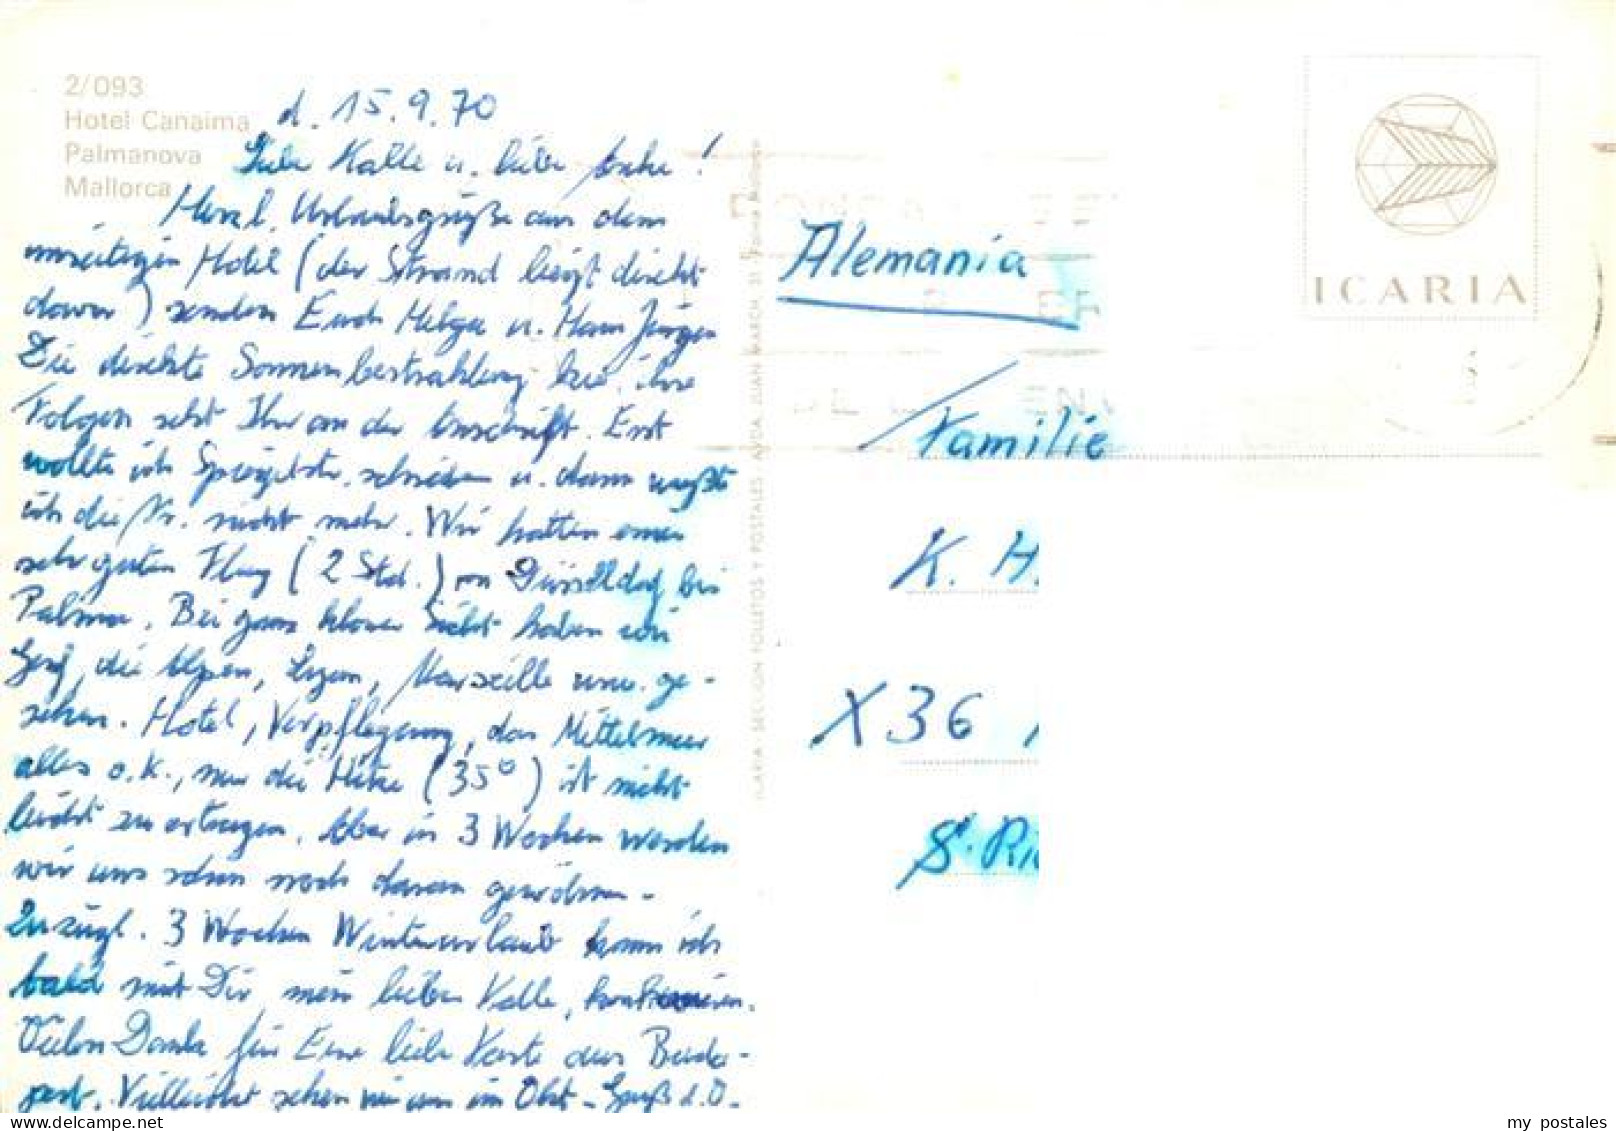 2/093
Hotel Canaima
Palmanova
Mallorca
d. 15.9.70
Liebe Kalle u. liebe !
Herzl. Urlaubsgrüße aus dem
umseitigen Hotel (der Strand liegt direkt
davor) senden Euch Helga u. Hans Jürgen
Die direkte Sonnenbestrahlung bzw. ihre
Folgen seht Ihr an der Anschrift. Erst
wollte ich Spiegelstr. schreiben u. dann wußte
ich die Nr. nicht mehr. Wir hatten einen
sehr guten Flug (2 Std.) von Düsseldorf bis
Palma. Bei ganz klarer Sicht haben wir
Genf, die Alpen, Lyon, Marseille usw. ge-
sehen. Hotel, Verpflegung, das Mittelmeer
alles o.k., nur die Hitze (35°) ist nicht
leicht zu ertragen. Aber in 3 Wochen werden
wir uns schon noch daran gewöhnen.
Zuzügl. 3 Wochen Winterurlaub kann ich
bald mit Dir, mein lieber Kalle, konkurrieren.
Vielen Dank für Eure liebe Karte aus Buda-
pest. Vielleicht sehen wir uns im Okt. - Gruß d.O.
ICARIA - SECCION FOLLETOS Y POSTALES AVDA JUAN MARCH, 33 Palma Mallorca
ICARIA
Alemania
Familie
K. H.
X 36
S. Ri
my postales